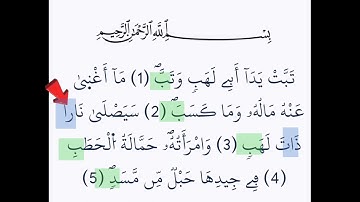 بِسْمِ اللَّهِ الرَّحْمَٰنِ الرَّحِيمِ
تَبَّتْ يَدَآ أَبِے لَهَبٖ وَتَبَّۖ (1) مَآ أَغْنۭىٰ
عَنْهُ مَالُهُۥ وَمَا كَسَبَۖ (2) سَيَصْلَىٰ نَاراٗ
ذَاتَ لَهَبٖ (3) وَامْرَأَتُهُۥۖ حَمَّالَةُ اُ۬لْحَطَبِ
(4) فِے جِيدِهَا حَبْلٞ مِّن مَّسَدٖۖ (5)